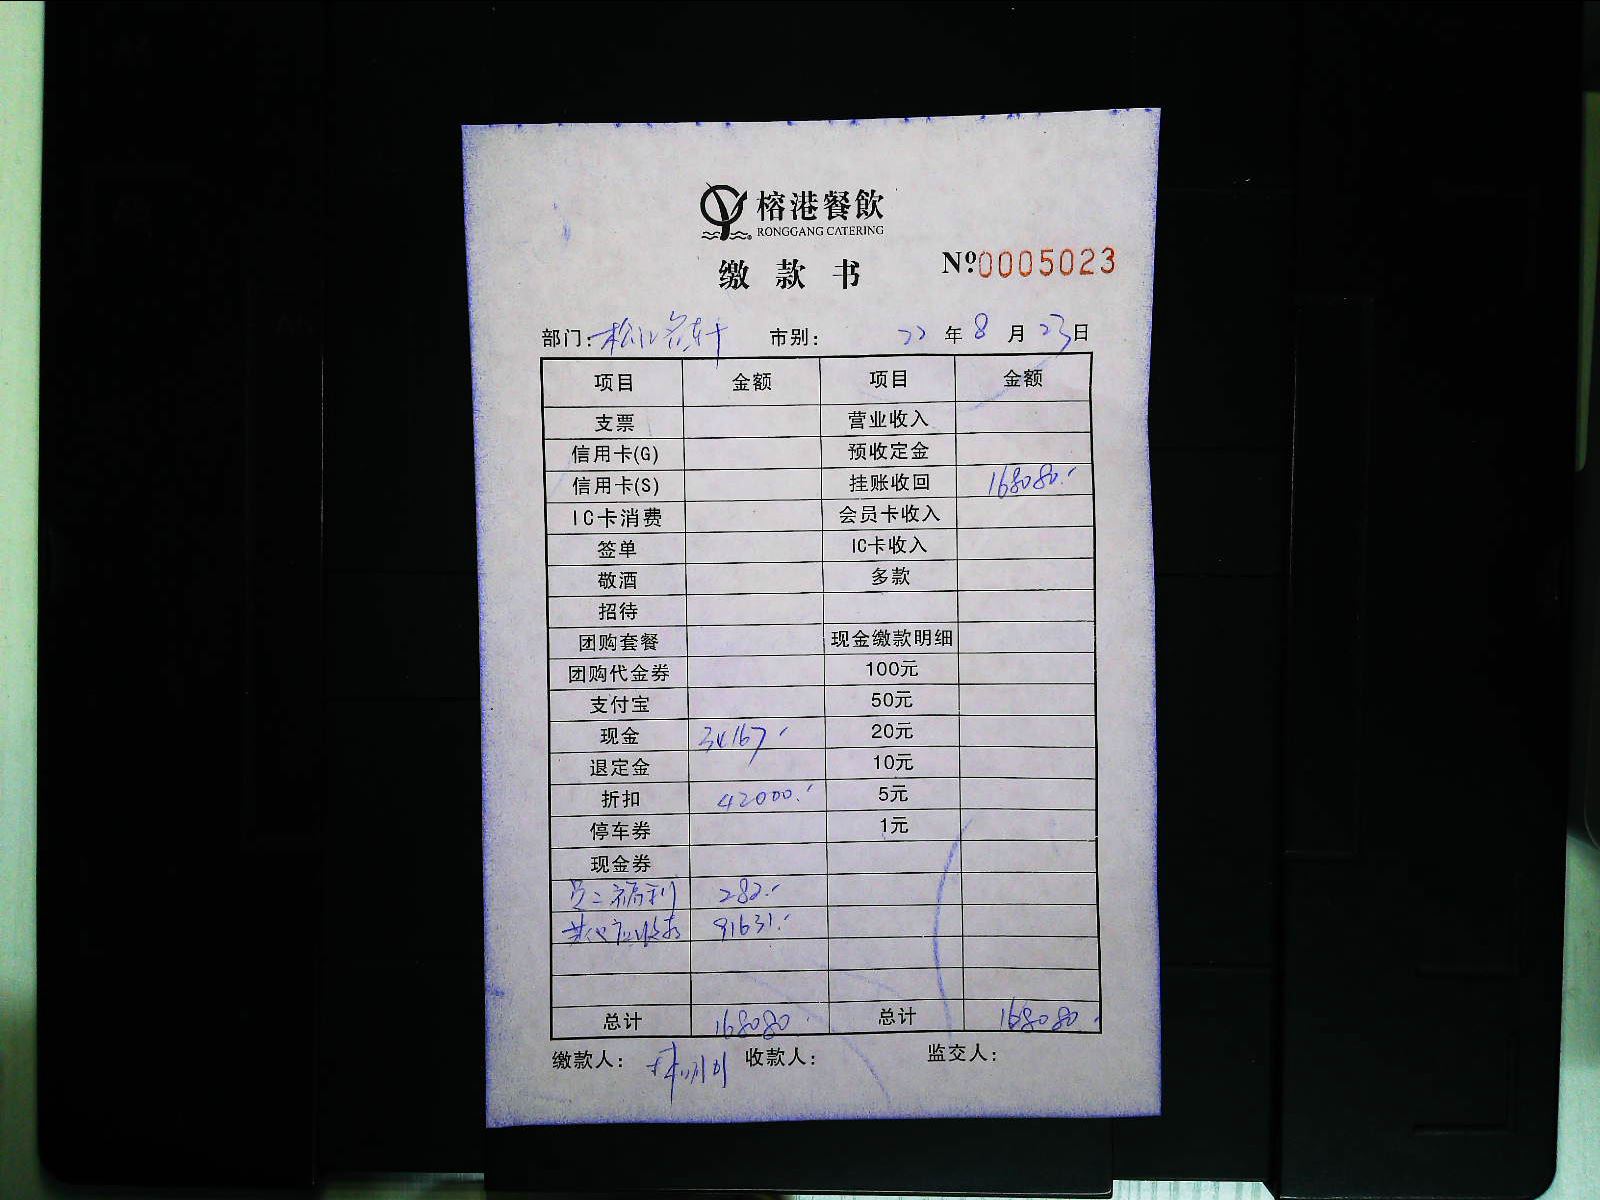 榕港餐飲
RONGGANG CATERING
缴款书 Nº0005023
部门: 松江名轩 市别: 22年8月23日
项目 金额 项目 金额
支票 营业收入
信用卡(G) 预收定金
信用卡(S) 挂账收回 168080.
IC卡消费 会员卡收入
签单 IC卡收入
敬酒 多款
招待
团购套餐 现金缴款明细
团购代金券 100元
支付宝 50元
现金 34167. 20元
退定金 10元
折扣 42000. 5元
停车券 1元
现金券
员工福利 282.
其他应收款 91631.
总计 168080. 总计 168080.
缴款人: 收款人: 监交人: